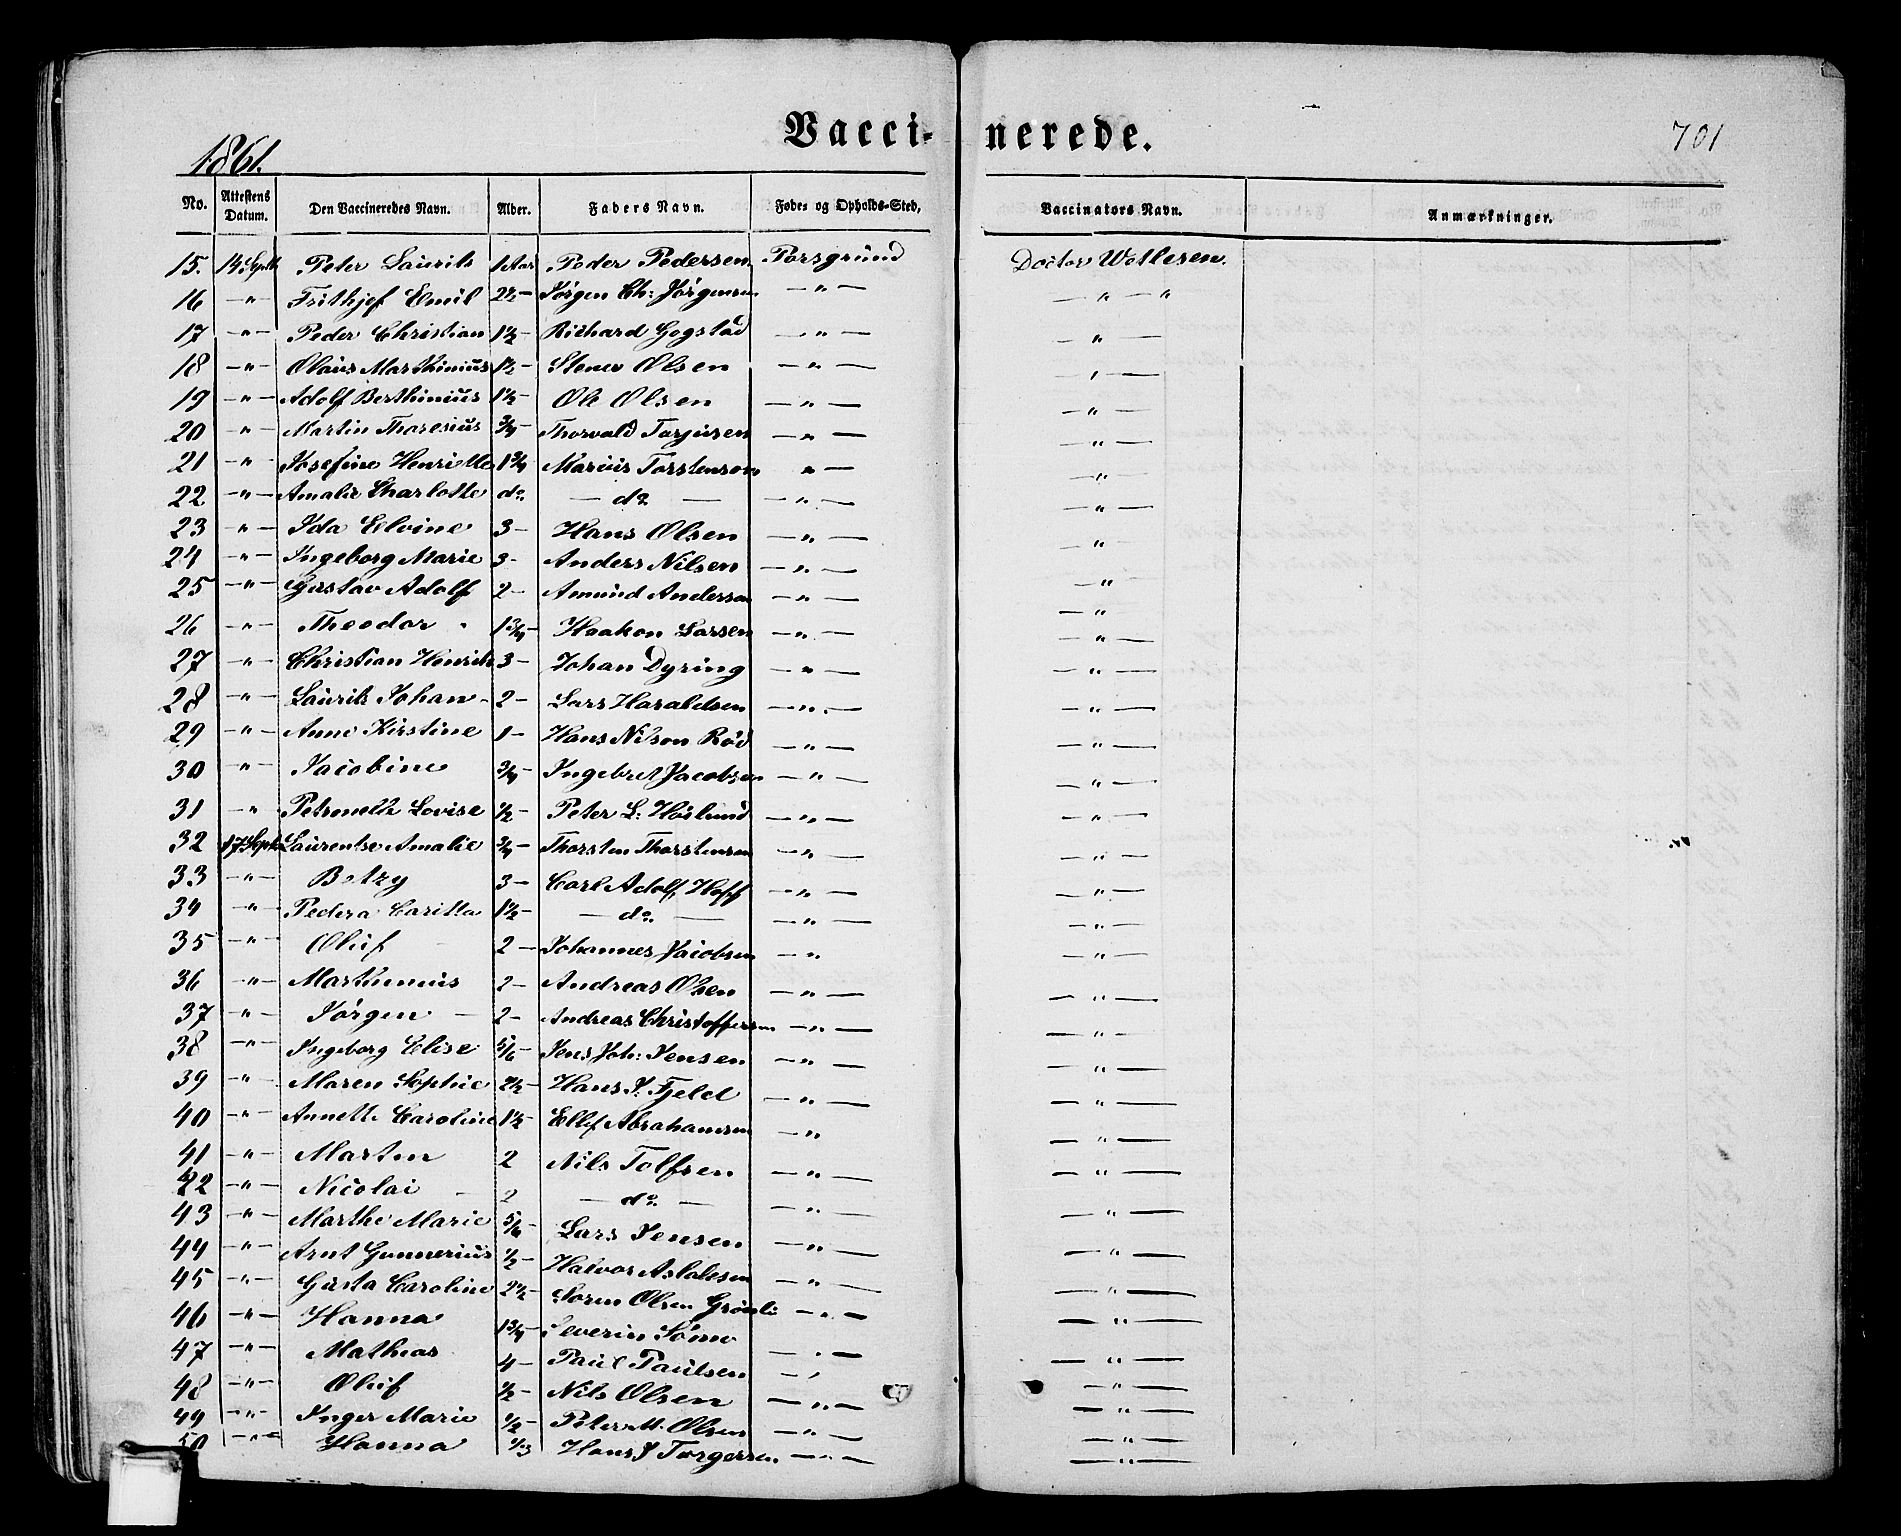 Vacci-nerede.
701
1861.
No. Attestens Datum. Den Vaccineredes Navn. Alder. Faders Navn. Føde- og Opholds-Sted, Vaccinators Navn. Anmærkninger.
15. 14 Septb Peter Laurits 1 Aar Peder Pedersen Porsgrund Doctor Wetlesen.
16 —"— Frithjof Emil 2½— Jørgen Ch: Jørgensen —"— —"—"
17 —"— Peder Christian 1½— Richard Gogstad —"— —"—
18 —"— Olaus Marthinius 1½— Stener Olsen —"— —"—
19 —"— Adolf Berthinius 1½— Ole Olsen —"— —"—
20 —"— Martin Thoresius ¾— Thorvald Torjusen —"— —"—
21 —"— Josefine Henriette 1¾ Marius Torstenson "— —"—
22 —"— Amalie Charlotte do. — do. — —"— —"—
23 —"— Ida Elvine 3— Hans Olsen —"— —"—
24 —"— Ingeborg Marie 3- Anders Nilsen —"— —"—
25 —"— Gustav Adolf 2— Amund Anderson —"— —"
26 —"— Theodor 1¾— Haakon Larsen —"— —"
27 —"— Christian Henrik 3— Johan Dyring —"— —"—
28 —"— Laurits Johan 2— Lars Haraldsen —"— —"—
29 —"— Anne Kirstine 1— Hans Nilson Röd —"— —"—
30 —"— Jacobine ¾— Ingebret Jacobsen —"— —"—
31 —" Petronelle Lovise ½— Peter L. Høilund —"— —"—
32 17 Septb Laurentse Amalie ¾— Thorsten Thorstensen —"— —"—
33 —"— Betzy 3— Carl Adolf Hoff —"— —"—
34 —"— Pedera Carilla 1½— — do. — —"— —"—
35 —"— Oluf 2— Johannes Jacobsen —" —"—
36 —"— Marthinius 2— Andreas Olsen —"— —"—
37 —"— Jørgen 2— Andreas Christoffersen —"— —"—
38 —"— Ingeborg Elise 5/6— Jens Joh: Jensen —"— —"—
39 —"— Maren Sophie 2½— Hans J. Fjeld —"— —"—
40 —"— Annette Caroline 1½— Ellef Abrahamsen —" —"—
41 —"— Martin 2 Nils Tolfsen —"— —"—
42 —"— Nicolai 2 — do. — —"— —"—
43 —"— Marthe Marie 5/6— Lars Jensen —"— —"—
44 —"— Arnt Gunnerius ½— Halvor Aslaksen —"— —"—
45 —"— Gusta Caroline 2½— Søren Olsen Grönli —"— —"—
46 —"— Hanna 1¾— Severin —"— —"—
47 —"— Mathias 4— Paul Paulsen —"— —"—
48 —"— Oluf ½— Nils Olsen —"— —"—
49 —"— Inger Marie ½— Peter M. Olsen —"— —"—
50 —"— Hanna Hans J Torgersen —"— —"—